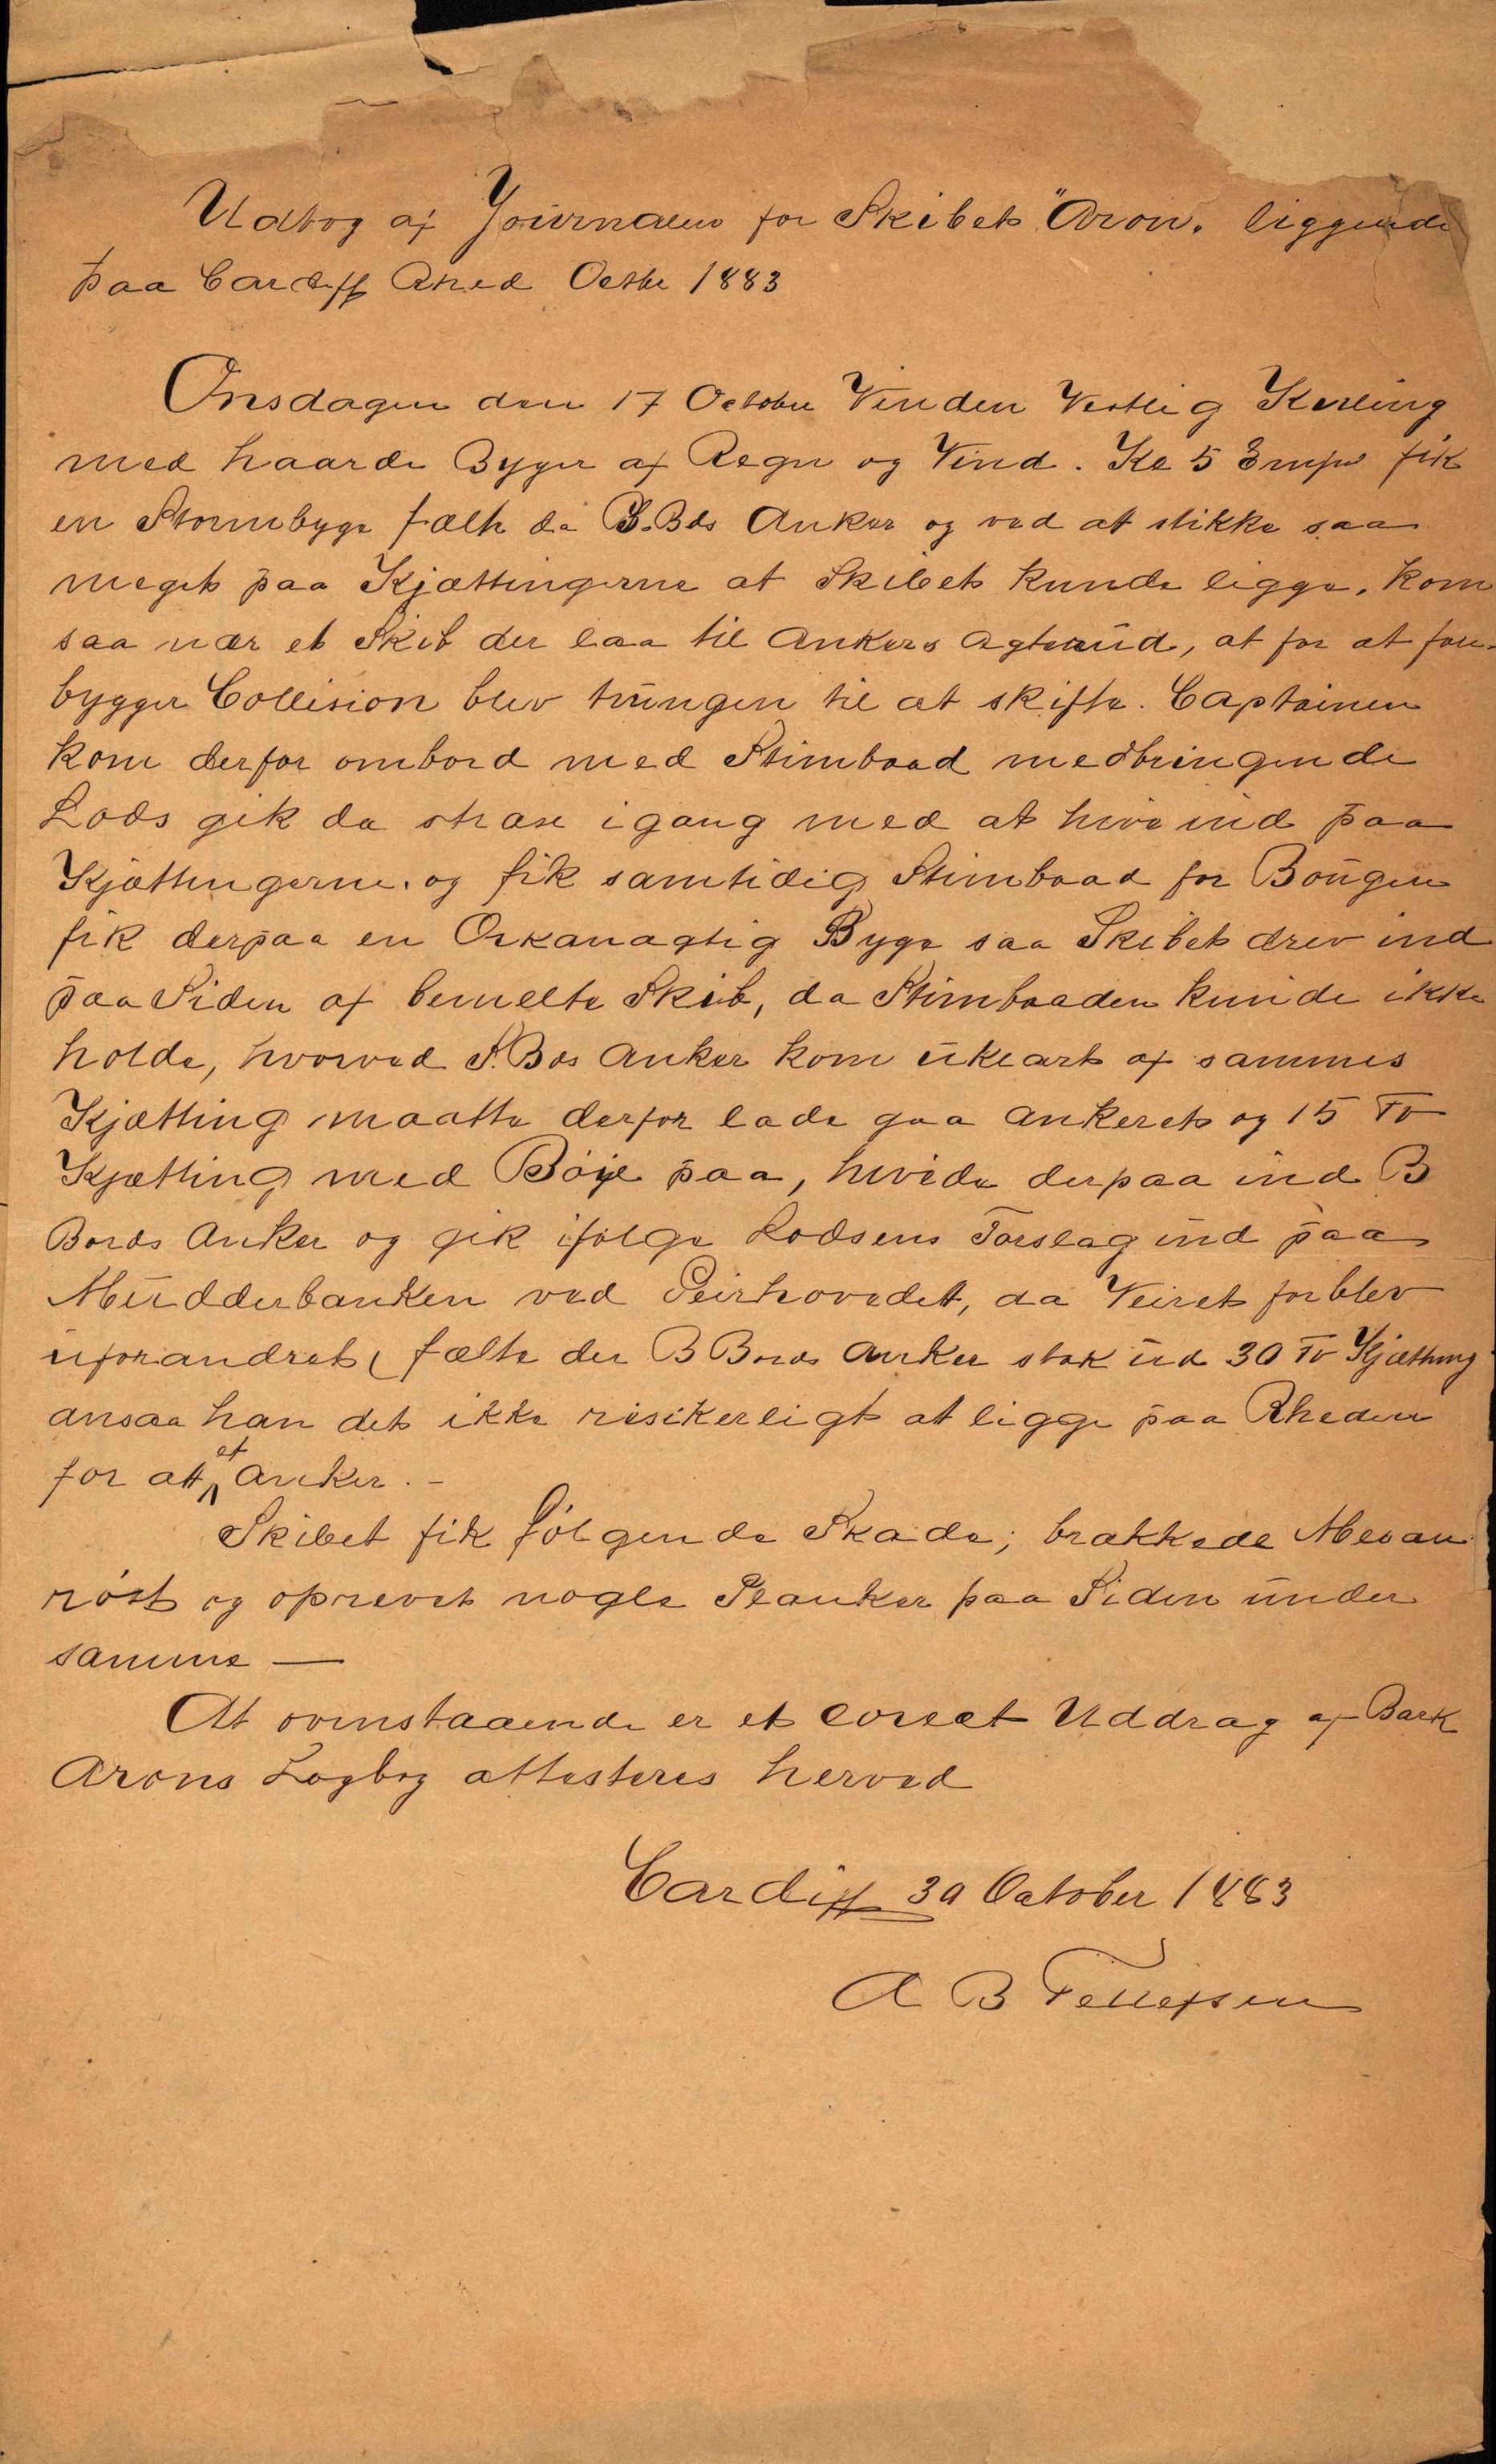 Udtog af Journalen for Skibet "Aron" liggende
paa Cardiff Rhed Octbr 1883
Onsdagen den 17 October Vinden Vestlig Kuling
med haarde Byger af Regn og Vind. Kl 5 Emp fik
en Stormbyge fælte da S.Bds Anker og ved at stikke saa
meget paa Kjættingerne at Skibet kunde ligge, kom
saa nær et Skib der laa til Ankers agterud, at for at fore-
bygger Collision blev tvungen til at skifte. Captainen
kom derfor ombord med Stimbaad medbringende
Lods gik da strax igang med at hive ind paa
Kjættingerne, og fik samtidig Stimbaad for Bougen
fik derpaa en Orkanagtig Byge saa Skibet drev ind
paa Siden af bemelte Skib, da Stimbaaden kunde ikke
holde, hvorved S.Bds Anker kom uklart af sammes
Kjætting maatte derfor lade gaa Ankeret og 15 Fv
Kjætting med Bøje paa, hvide derpaa ind B
Bords Anker og gik ifølge Lodsens Forslag ind paa
Mudderbanken ved Peirhovedet, da Veiret forblev
uforandret, fælte der B Bords Anker stak ud 30 Fv Kjætting
ansaa han det ikke risikerligt at ligge paa Rheden
for att et Anker. -
Skibet fik følgende Skade; brækkede Mesan
røst og oprevet nogle Planker paa Siden under
samme —
At ovenstaaende er et corect Uddrag af Bark
Arons Logbog attesteres herved
Cardiff 30 October 1883
A B Tellefsen